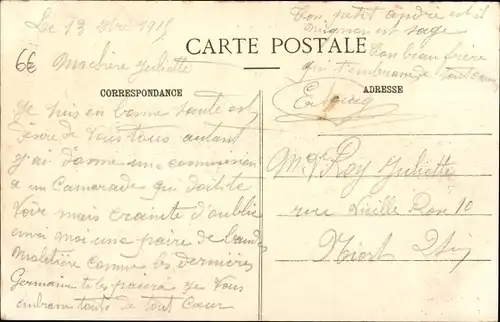 Le 13 1915
Ton petit andre est il
mignon est sage
CARTE POSTALE
Ton beau frère
qui t'embrasse de tout cœur
66
Ma chère Juliette
CORRESPONDANCE
ADRESSE
Je suis en bonne santé est
désire de vous tous autant
J'ai donné une commission
a un Camarade qui doit te
voir mais crainte d'oublie
envoi moi une paire de bandes
Moletière comme les dernières
Germaine te les paiera Je vous
embrasse toute de tout Cœur
Roy Juliette
rue Vieille Rose 10
Niort